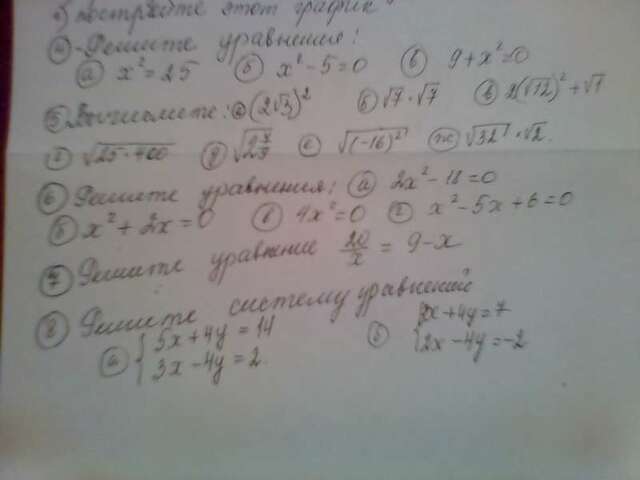 постройте этот график
④ Решите уравнения:
ⓐ x² = 25 ⓑ x² - 5 = 0 ⓑ 9 + x² = 0
⑤ Вычислите: ⓐ (2√3)² ⓑ √7 · √7 ⓑ 2(√12)² + √1
ⓖ √25·400 ⓓ ⓔ √(-16)² ⓙ √32 · √2.
⑥ Решите уравнения: ⓐ 2x² - 18 = 0
ⓑ x² + 2x = 0 ⓑ 4x² = 0 ⓖ x² - 5x + 6 = 0
⑦ Решите уравнение 20/x = 9 - x
⑧ Решите систему уравнений
ⓐ { 5x + 4y = 14 ⓑ { x + 4y = 7
3x - 4y = 2. 2x - 4y = -2